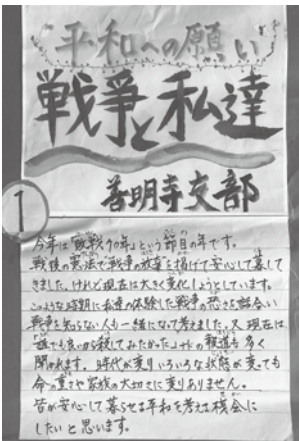 平和への願い
戦争と私達
善明寺支部
1
今年は「敗戦70年」という節目の年です。
戦後の憲法で「戦争の放棄」を掲げて安心して暮して
きました。けれど現在は大きく変化しようとしています。
このような時期に私達の体験した戦争の恐さを話合い
戦争を知らない人も一緒になって考えました。又現在は
「誰でも良いから殺してみたかった」などの報道も多く
聞かれます。時代が変りいろいろな状態が変っても
命の重さや家族の大切さに変りありません。
皆が安心して暮らせる平和を考える機会に
したいと思います。